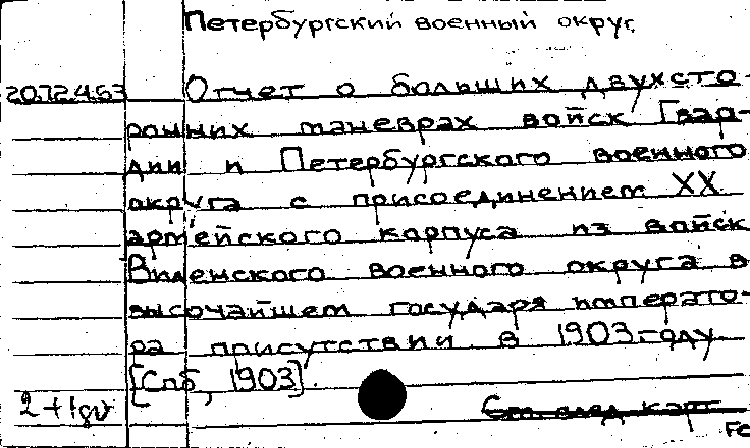 Петербургский военный округ.
20.72.4.63 Отчет о больших двухсто-
ронних маневрах войск Гвар-
дии и Петербургского военного
округа с присоединением XX
армейского корпуса из войск
Виленского военного округа в
высочайшем государя императо-
ра присутствии в 1903 году
[Спб, 1903].
См. след карт.